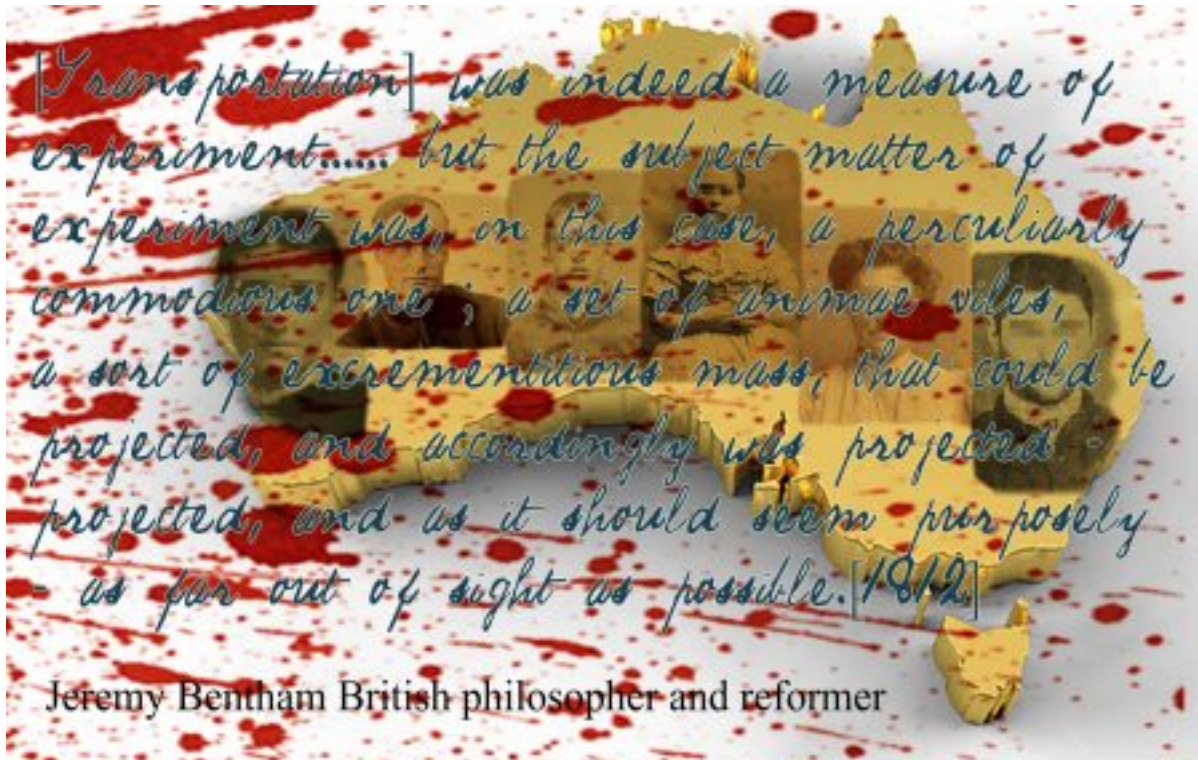 [Transportation] was indeed a measure of
experiment...... but the subject matter of
experiment was, in this case, a perculiarly
commodious one ; a set of animae viles,
a sort of excrementitious mass, that could be
projected, and accordingly was projected -
projected, and as it should seem purposely
- as far out of sight as possible.[1812]
Jeremy Bentham British philosopher and reformer